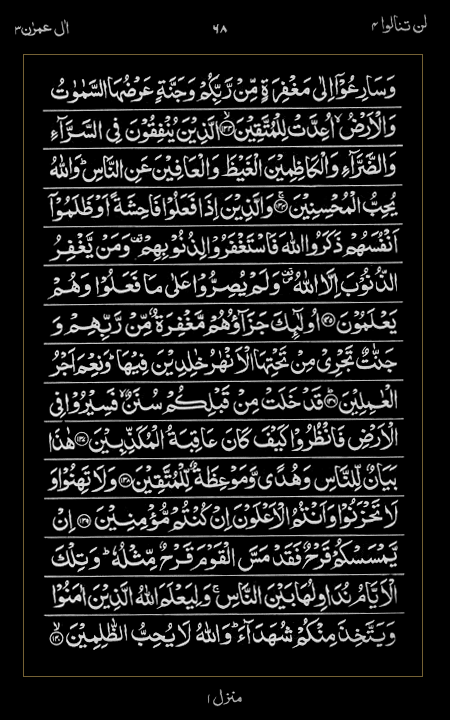 لن تنالوا ۴ ۶۸ اٰل عمرٰن ۳
وَسَارِعُوْۤا اِلٰى مَغْفِرَةٍ مِّنْ رَّبِّكُمْ وَجَنَّةٍ عَرْضُهَا السَّمٰوٰتُ
وَالْاَرْضُ ۙ اُعِدَّتْ لِلْمُتَّقِيْنَ ۙ﴿۱۳۳﴾ الَّذِيْنَ يُنْفِقُوْنَ فِى السَّرَّآءِ
وَالضَّرَّآءِ وَالْكَاظِمِيْنَ الْغَيْظَ وَالْعَافِيْنَ عَنِ النَّاسِ ؕ وَاللّٰهُ
يُحِبُّ الْمُحْسِنِيْنَ ۚ﴿۱۳۴﴾ وَالَّذِيْنَ اِذَا فَعَلُوْا فَاحِشَةً اَوْ ظَلَمُوْۤا
اَنْفُسَهُمْ ذَكَرُوا اللّٰهَ فَاسْتَغْفَرُوْا لِذُنُوْبِهِمْ ۪ وَمَنْ يَّغْفِرُ
الذُّنُوْبَ اِلَّا اللّٰهُ ۪ وَلَمْ يُصِرُّوْا عَلٰى مَا فَعَلُوْا وَهُمْ
يَعْلَمُوْنَ ﴿۱۳۵﴾ اُولٰٓئِكَ جَزَآؤُهُمْ مَّغْفِرَةٌ مِّنْ رَّبِّهِمْ وَ
جَنّٰتٌ تَجْرِىْ مِنْ تَحْتِهَا الْاَنْهٰرُ خٰلِدِيْنَ فِيْهَا ؕ وَنِعْمَ اَجْرُ
الْعٰمِلِيْنَ ؕ﴿۱۳۶﴾ قَدْ خَلَتْ مِنْ قَبْلِكُمْ سُنَنٌ ۙ فَسِيْرُوْا فِى
الْاَرْضِ فَانْظُرُوْا كَيْفَ كَانَ عَاقِبَةُ الْمُكَذِّبِيْنَ ﴿۱۳۷﴾ هٰذَا
بَيَانٌ لِّلنَّاسِ وَهُدًى وَّمَوْعِظَةٌ لِّلْمُتَّقِيْنَ ﴿۱۳۸﴾ وَلَا تَهِنُوْا وَ
لَا تَحْزَنُوْا وَاَنْتُمُ الْاَعْلَوْنَ اِنْ كُنْتُمْ مُّؤْمِنِيْنَ ﴿۱۳۹﴾ اِنْ
يَّمْسَسْكُمْ قَرْحٌ فَقَدْ مَسَّ الْقَوْمَ قَرْحٌ مِّثْلُهٗ ؕ وَتِلْكَ
الْاَيَّامُ نُدَاوِلُهَا بَيْنَ النَّاسِ ۚ وَلِيَعْلَمَ اللّٰهُ الَّذِيْنَ اٰمَنُوْا
وَيَتَّخِذَ مِنْكُمْ شُهَدَآءَ ؕ وَاللّٰهُ لَا يُحِبُّ الظّٰلِمِيْنَ ۙ﴿۱۴۰﴾
منزل ۱